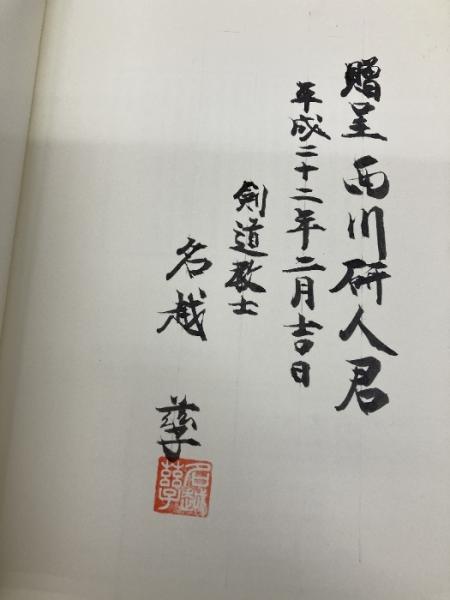 贈呈 西川研人君
平成二十二年二月吉日
剣道教士
名越 孳
名越
孳